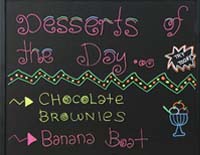 Desserts of
the Day...
Chocolate
Brownies
Banana Boat